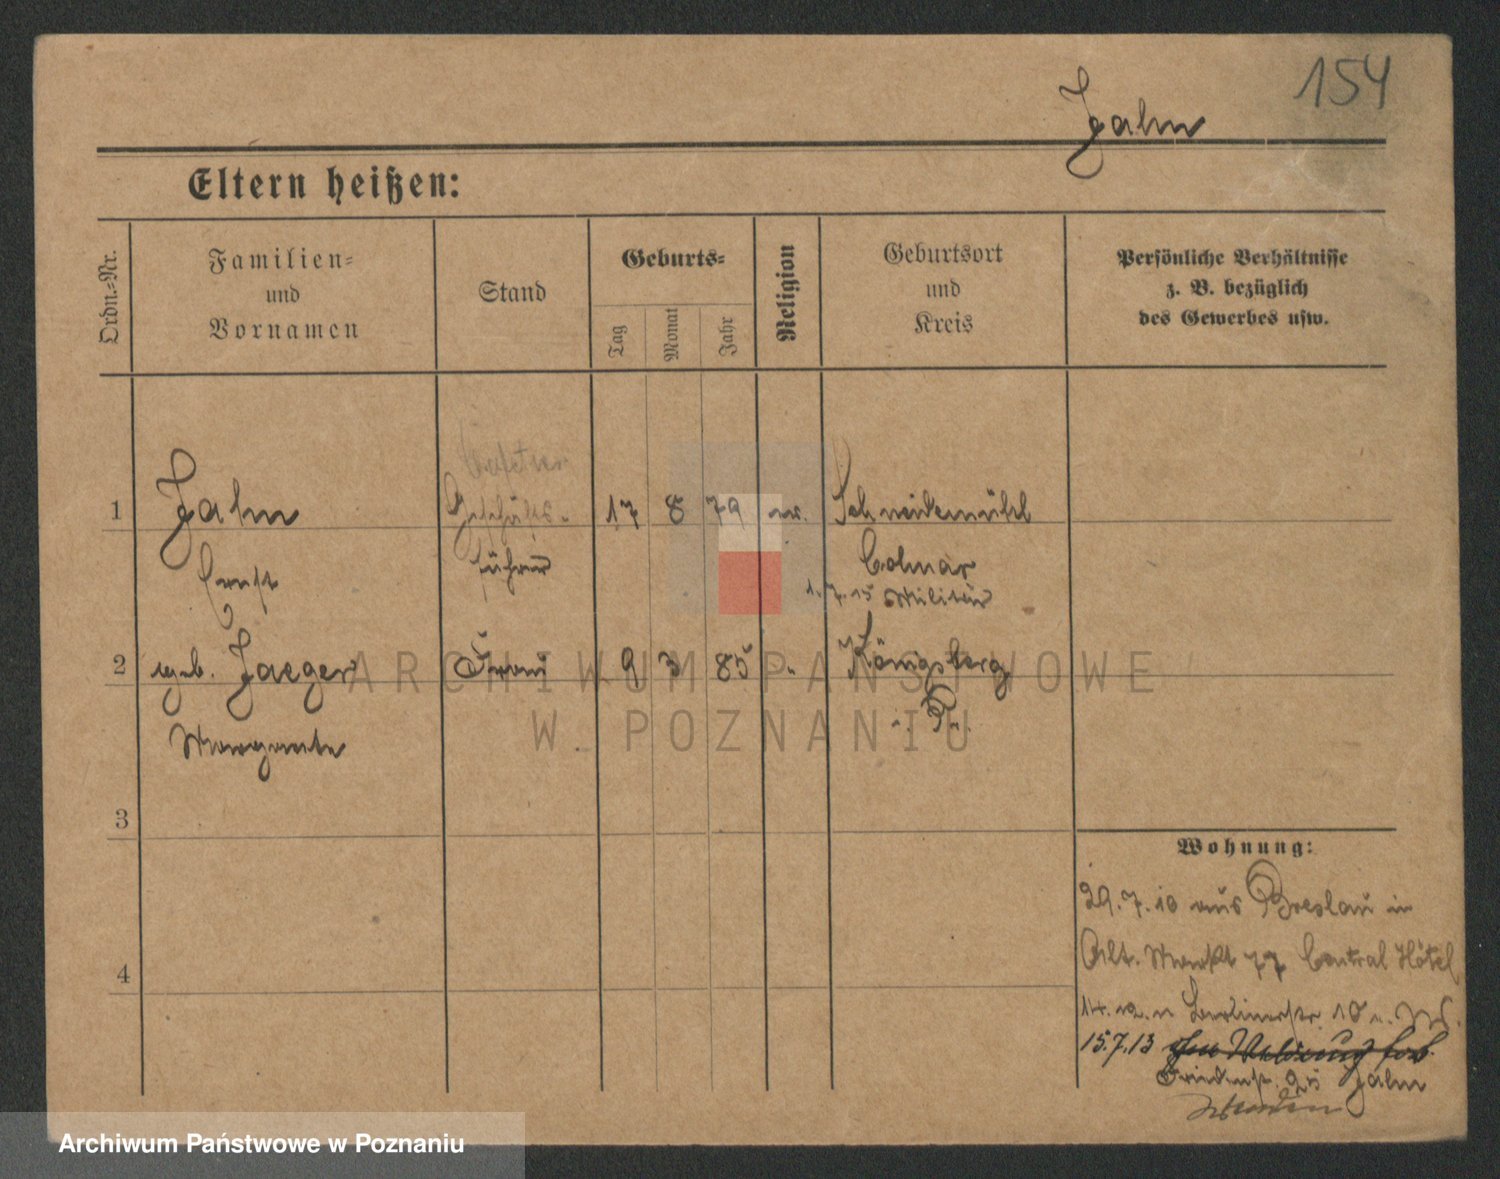 154
Jahn
Eltern heißen:
Ordn.-Nr.
Familien-
und
Vornamen
Stand
Geburts-
Tag
Monat
Jahr
Religion
Geburtsort
und
Kreis
Persönliche Verhältnisse
z. B. bezüglich
des Gewerbes usw.
1 Jahn Geschäfts- 17 8 79 ev. Schneidemühl
Ernst führer Colmar
1.7.15 Militär
2 geb. Jaeger Frau 9 3 85 " Königsberg
Margarete i. Pr.
3
4
Wohnung:
29.7.10 aus Breslau in
Alt. Markt 77 Central Hôtel
14. Berlinerstr. 10
15.7.13
25 Jahn
ARCHIWUM PAŃSTWOWE
W POZNANIU
Archiwum Państwowe w Poznaniu